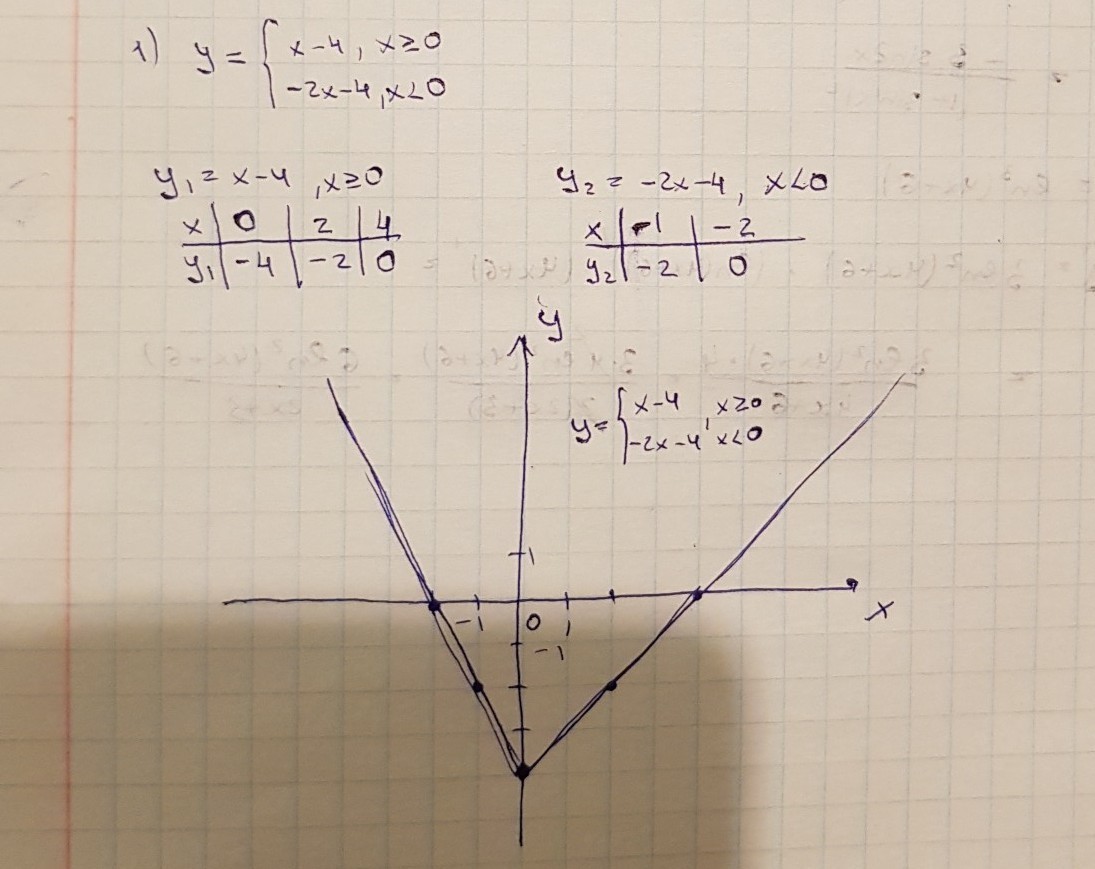 1) y = { x-4, x≥0
-2x-4, x<0
y₁ = x-4, x≥0
x | 0 | 2 | 4
y₁ | -4 | -2 | 0
y₂ = -2x-4, x<0
x | -1 | -2
y₂ | -2 | 0
y
y = { x-4, x≥0
-2x-4, x<0
1
-1 0 1
x
-1